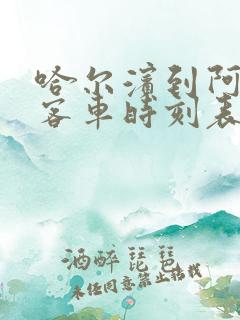 哈尔滨到阿
客车时刻表
酒醉琵琶
未经同意禁止转载